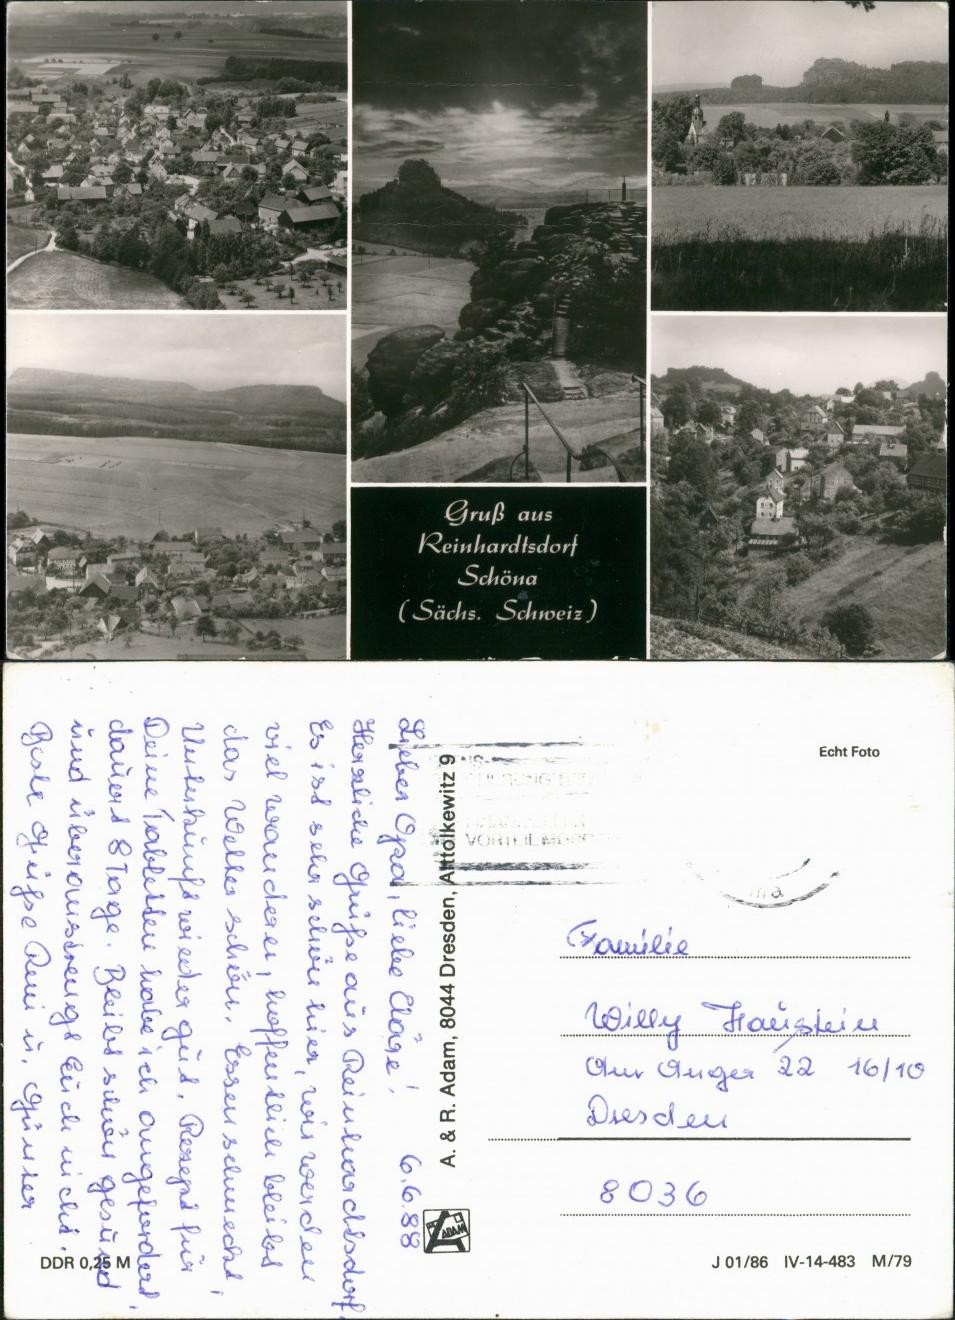 Gruß aus
Reinhardtsdorf
Schöna
(Sächs. Schweiz)
Lieber Opa, liebe Cläre! 6.6.88
Herzliche Grüße aus Reinhardtsdorf.
Es ist sehr schön hier, wir werden
viel wandern, hoffentlich bleibt
das Wetter schön. Essen schmeckt,
Unterkunft wieder gut. Rezept für
Deine Tabletten habe ich angefordert,
dauert 8 Tage. Bleibt schön gesund
und überanstrengt Euch nicht.
Beste Grüße Reni u. Günter
A. & R. Adam, 8044 Dresden, Alttolkewitz 9
ADAM
Echt Foto
Familie
Willy Haustein
Am Anger 22 16/10
Dresden
8036
DDR 0,25 M
J 01/86 IV-14-483 M/79